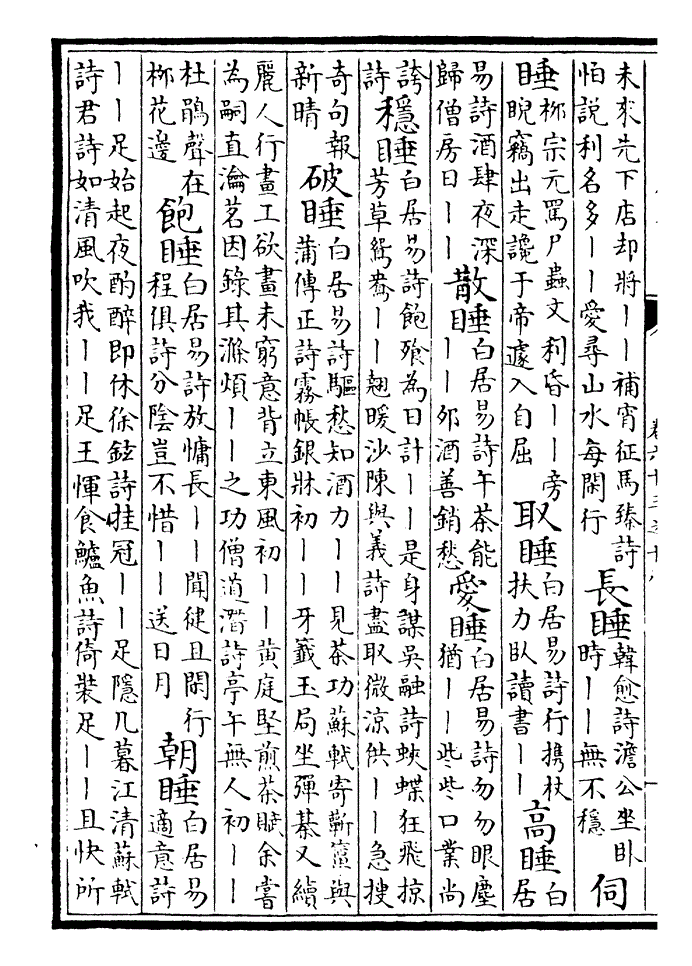 未來先下店却將丨丨補宵征馬臻詩
怕說利名多丨丨愛尋山水每閑行
長睡
韓愈詩澹公坐卧
時丨丨無不穩
伺
睡
柳宗元罵尸蟲文利昏丨丨旁
睨竊出走讒于帝遽入自屈
取睡
白居易詩行携杖
扶力臥讀書丨丨
高睡
白
居
易詩酒肆夜深
歸僧房日丨丨
散睡
白居易詩午茶能
丨丨夘酒善銷愁
愛睡
白居易詩勿勿眼塵
猶丨丨些些口業尚
誇
詩
穩睡
白居易詩飽飱為日計丨丨是身謀吳融詩蛺蝶狂飛掠
芳草鴛鴦丨丨翹暖沙陳與義詩盡取微涼供丨丨急搜
奇句報
新晴
破睡
白居易詩驅愁知酒力丨丨見茶功蘇軾寄蘄簟與
蒲傳正詩霧帳銀牀初丨丨牙籤玉局坐彈棊又續
麗人行畫工欲畫未窮意背立東風初丨丨黃庭堅煎茶賦余嘗
為嗣直瀹茗因錄其滌煩丨丨之功僧道潛詩亭午無人初丨丨
杜鵑聲在
柳花邊
飽睡
白居易詩放慵長丨丨聞健且閑行
程俱詩分陰豈不惜丨丨送日月
朝睡
白居易
適意詩
丨丨足始起夜酌醉即休徐鉉詩挂冠丨丨足隱几暮江清蘇軾
詩君詩如清風吹我丨丨足王惲食鱸魚詩倚裝足丨丨且快所